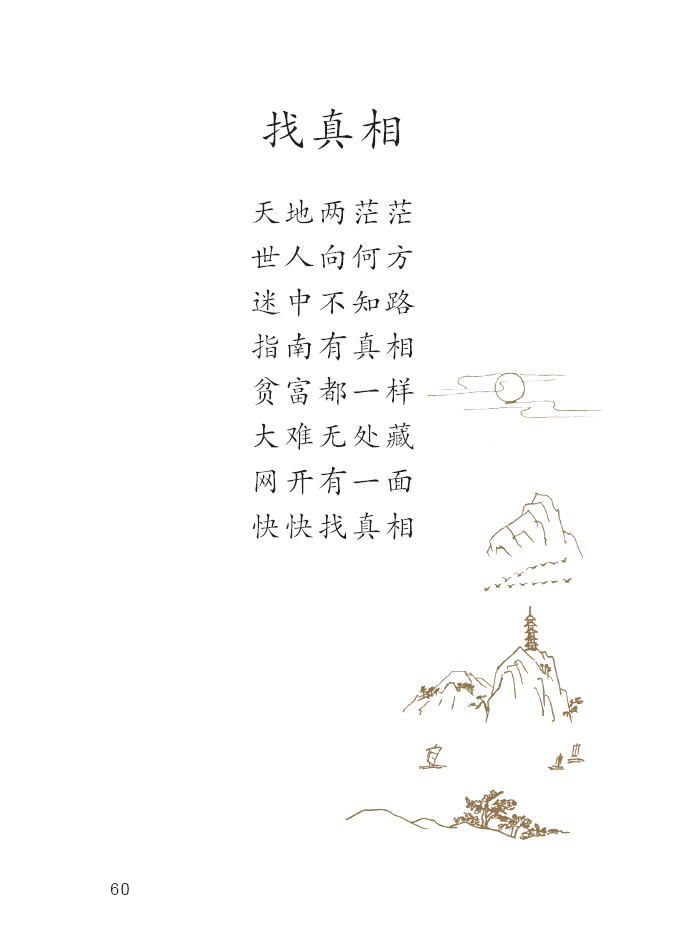 找真相
天地两茫茫
世人向何方
迷中不知路
指南有真相
贫富都一样
大难无处藏
网开有一面
快快找真相
60